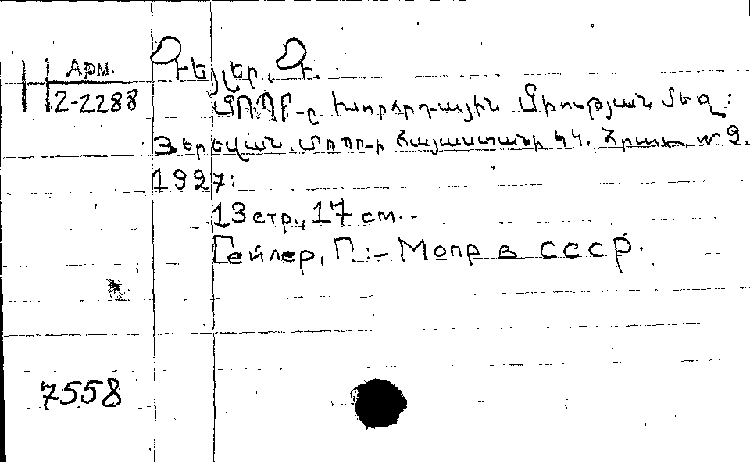 Арм.
2-2288
ՄՈՊՐ-ը Խորհրդային Միության մեջ:
Յերեվան. ՄՈՊՐ-ի Հայաստանի Կ.Կ. Հրատ. № 2.
1927:
13 стр., 17 см.
Гейлер, П. :- Мопр в СССР.
7558